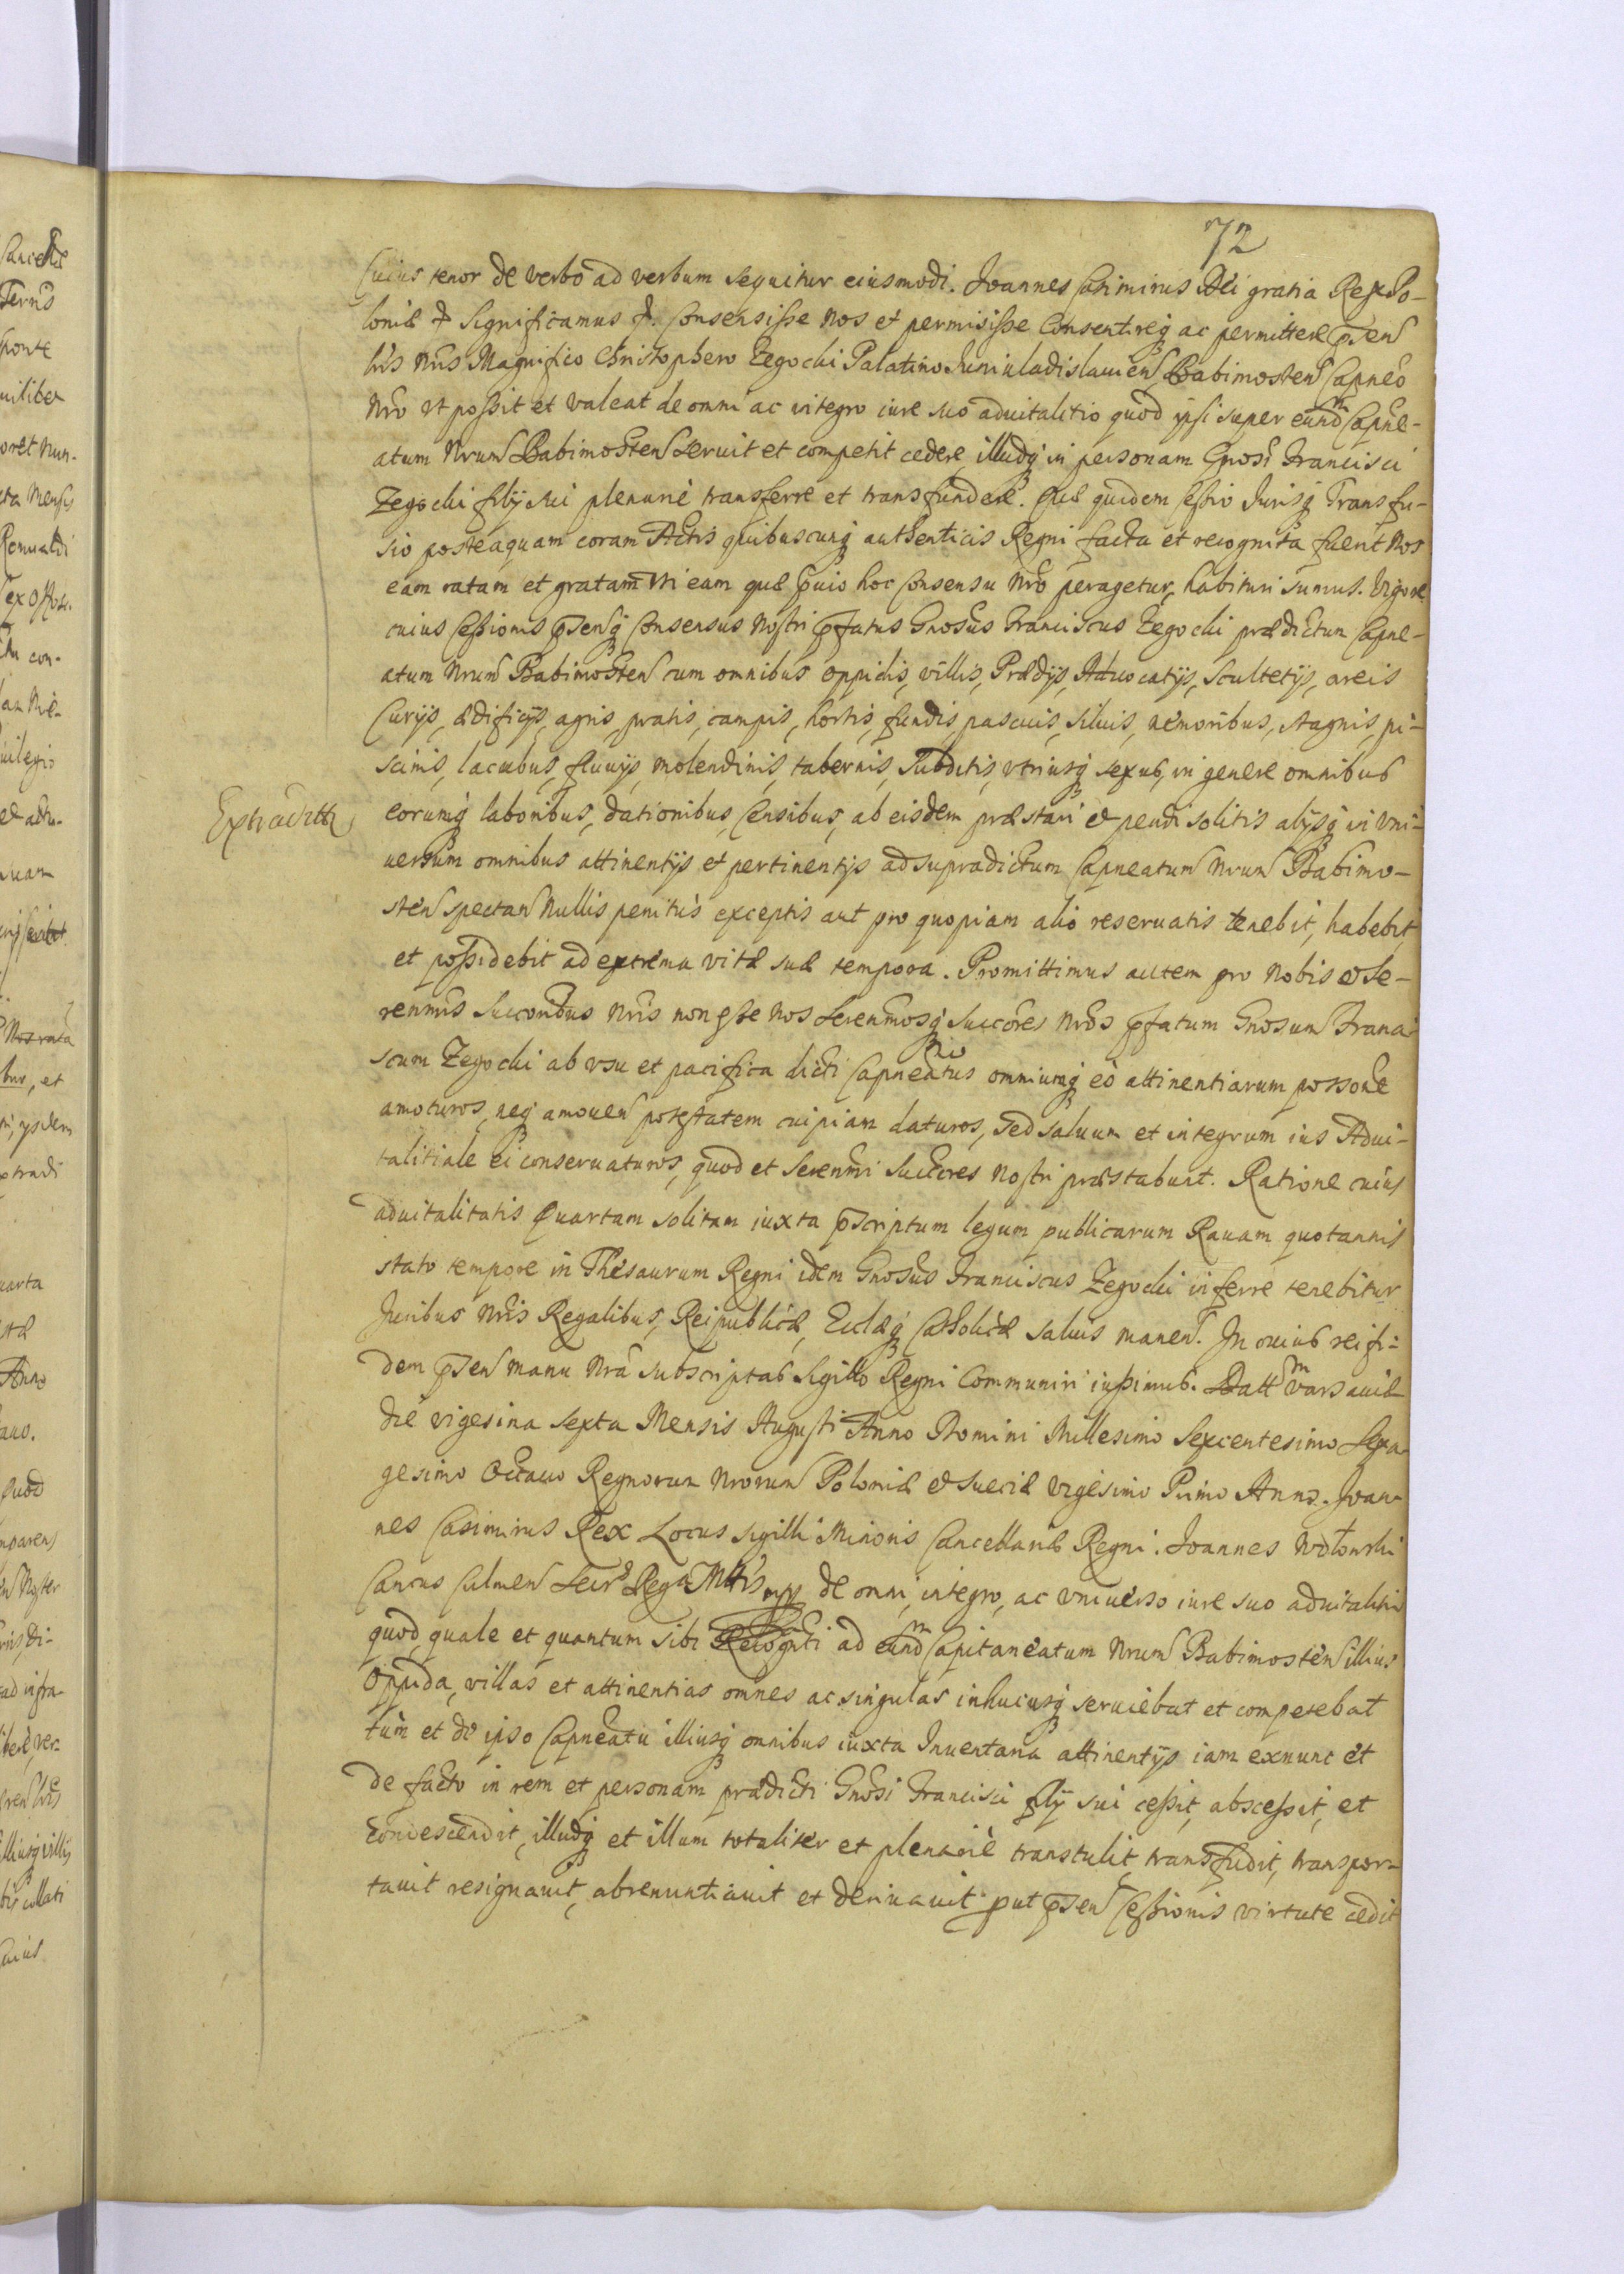 72
Cuius tenor de verbo ad verbum sequitur eiusmodi. Joannes Casimirus Dei gratia Rex Po-
loniæ & Significamus &. Consensisse Nos et permisisse Consentireq ac permittere pñen
lris Nris Magnifico Christophero Zegocki Palatino Juniuladislauien Babimosten Capneo
Nro vt possit et valeat de omni ac integro iure suo aduitalitio quod ipsi super eund Capne-
atum Nrum Babimosten seruit et competit cedere, illudq in personam Gnosi Francisci
Zegocki filij sui plenariè transferre et transfundere. Quæ quidem cessio Jurisq Transfu-
sio posteaquam coram Actis quibuscunq authenticis Regni facta et recognita fuerit Nos
eam ratam et gratam vti eam quæ hoc Consensu Nro peragetur, habituri sumus. Vigore
cuius Cessionis pñsenq Consensus Nostri pfatus Gnosus Franciscus Zegocki prædictum Capne-
atum Nrum Babimosten cum omnibus oppidis, villis, Prædijs, Aduocatijs, Scultetijs, areis
Curijs, ædificijs, agris, pratis, campis, hortis, fundis, pascuis, siluis, nemoribus, stagnis, pi-
scinis, lacubus, fluuijs, molendinis, tabernis, Subditis, vtriusq sexus, in genere omnibus
Extradittr
eorumq laboribus, dationibus, Censibus, ab eisdem præstari & pendi solitis alijsq in vni-
uersum omnibus attinentijs et pertinentijs ad supradictum Capneatum Nrum Babimo-
sten spectan Nullis penitùs exceptis aut pro quopiam alio reseruatis tenebit, habebit
et possidebit ad extrema vitæ suæ tempora. Promittimus autem pro Nobis & Se-
renmis Succoribus Nris non esse Nos Serenmosq Succores Nros pfatum Gnosum Franci
scum Zegocki ab vsu et pacifica dicti Capneatus omniumq eò attinentiarum possone
amoturos, neq amouen potestatem cuipiam daturos, sed saluum et integrum ius Adui-
talitiale ei conseruaturos, quod et Serenmi Succores Nostri præstabunt. Ratione cuius
aduitalitatis Quartam solitam iuxta pscriptum legum publicarum Rauam quotannis
stato tempore in Thesaurum Regni idem Gnosus Franciscus Zegocki inferre tenebitur
Juribus Nris Regalibus, Reipublicæ, Ecclæq Catholicæ saluis manen. In cuius rei fi-
dem pñsen manu Nra subscriptas Sigillo Regni Communiri iussimus. Datt Varsauiæ
die vigesima sexta Mensis Augusti Anno Domini Millesimo Sexcentesimo Sexa-
gesimo Octauo Regnorum Nrorum Poloniæ & Sueciæ vigesimo Primo Anno. Joan-
nes Casimirus Rex Locus sigilli Minoris Cancellariæ Regni. Joannes Wolowski
Canous Culmen Secrs Rega Mttis mpp de omni, integro, ac vniuerso iure suo aduitalitio
quod, quale et quantum sibi ad eund Capitaneatum Nrum Babimosten illius
Oppida, villas et attinentias omnes ac singulas inhucusq seruiebat et competebat
tum et de ipso Capneatu illiusq omnibus iuxta Inuentaria attinentijs iam exnunc et
de facto in rem et personam prædicti Gnosi Francisci filij sui cessit, abscessit, et
condescendit, illudq et illum totaliter et plenariè transtulit, transfudit, transpor-
tauit resignauit, abrenuntiauit et deriuauit put pñsen Cessionis virtute cedit